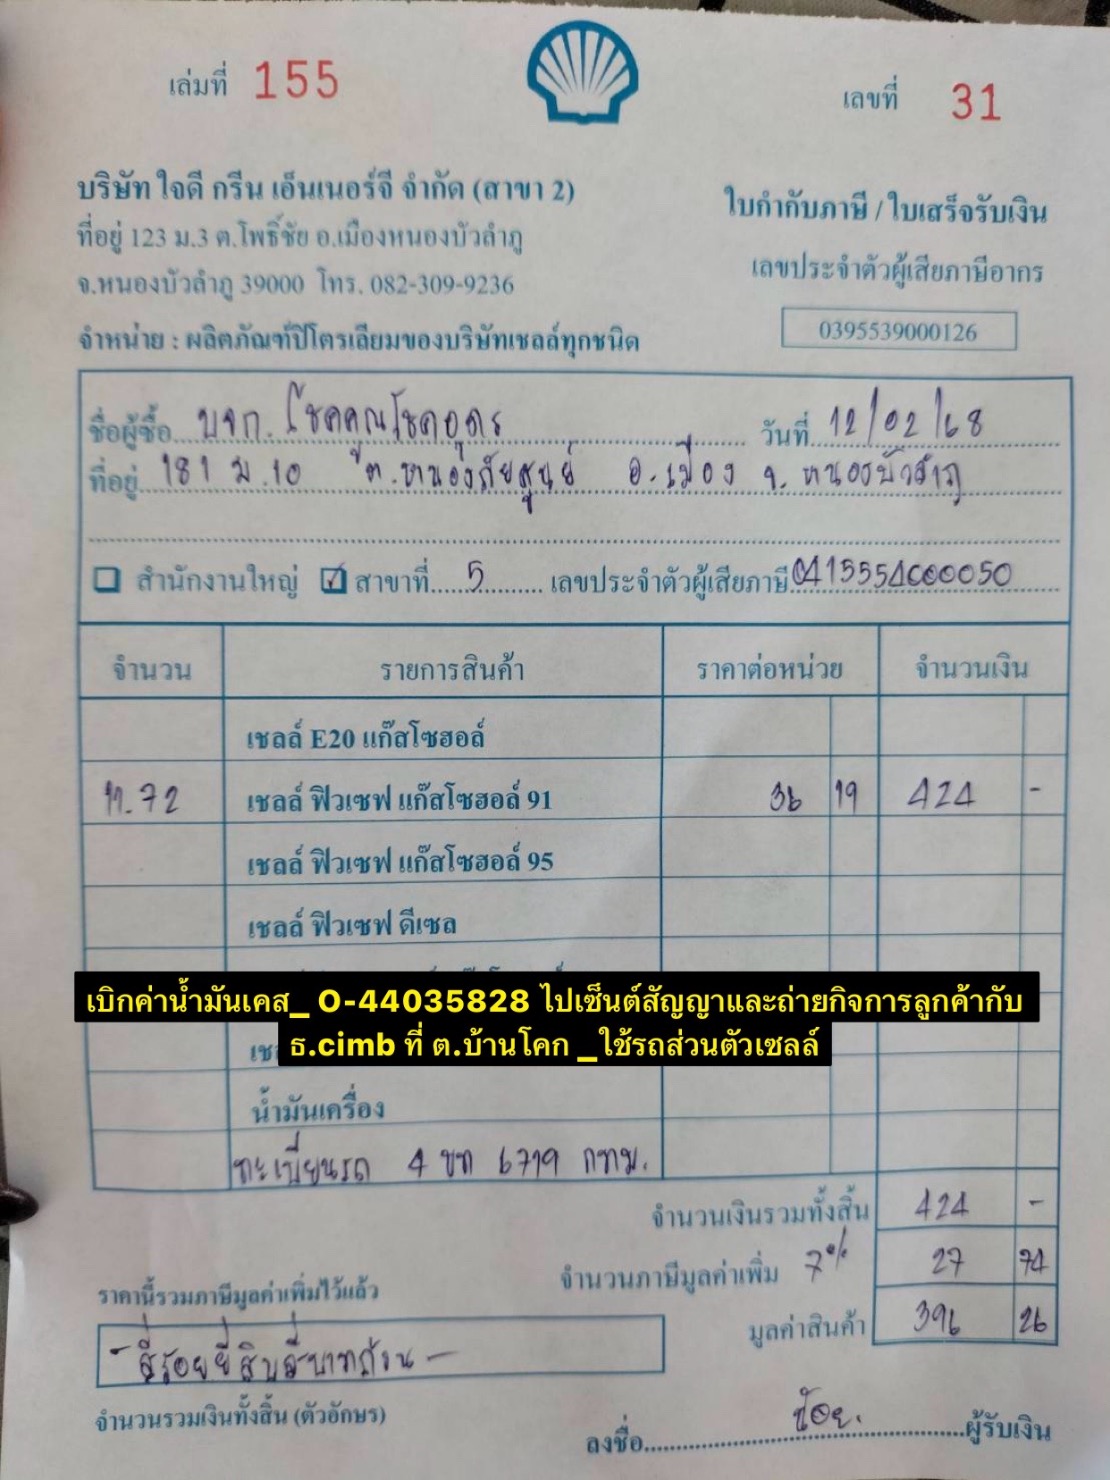 เล่มที่ 155
เลขที่ 31
บริษัท ใจดี กรีน เอ็นเนอร์จี จำกัด (สาขา 2)
ที่อยู่ 123 ม.3 ต.โพธิ์ชัย อ.เมืองหนองบัวลำภู
จ.หนองบัวลำภู 39000 โทร. 082-309-9236
จำหน่าย : ผลิตภัณฑ์ปิโตรเลียมของบริษัทเชลล์ทุกชนิด
ใบกำกับภาษี / ใบเสร็จรับเงิน
เลขประจำตัวผู้เสียภาษีอากร
0395539000126
ชื่อผู้ซื้อ บจก. โชคคุณโชคอุดร วันที่ 12/02/68
ที่อยู่ 181 ม.10 ต.หนองภัยศูนย์ อ.เมือง จ.หนองบัวลำภู
สำนักงานใหญ่ ☑ สาขาที่ 5 เลขประจำตัวผู้เสียภาษี
จำนวน รายการสินค้า ราคาต่อหน่วย จำนวนเงิน
เชลล์ E20 แก๊สโซฮอล์
11.72 เชลล์ ฟิวเซฟ แก๊สโซฮอล์ 91 36 19 424 -
เชลล์ ฟิวเซฟ แก๊สโซฮอล์ 95
เชลล์ ฟิวเซฟ ดีเซล
เบิกค่าน้ำมันเคส_ O-44035828 ไปเซ็นต์สัญญาและถ่ายกิจการลูกค้ากับ
ธ.cimb ที่ ต.บ้านโคก _ใช้รถส่วนตัวเซลล์
น้ำมันเครื่อง
ทะเบียนรถ 4 ขท 6719 กทม.
จำนวนเงินรวมทั้งสิ้น 424 -
จำนวนภาษีมูลค่าเพิ่ม 7% 27 74
มูลค่าสินค้า 396 26
ราคานี้รวมภาษีมูลค่าเพิ่มไว้แล้ว
- สี่ร้อยยี่สิบสี่บาทถ้วน -
จำนวนรวมเงินทั้งสิ้น (ตัวอักษร)
ลงชื่อ ผู้รับเงิน